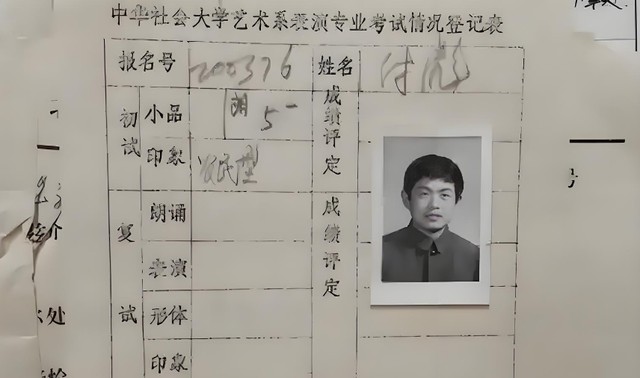 中华社会大学艺术系表演专业考试情况登记表
报名号 200376 姓名 付彪
初试 小品 朗 5一 成绩评定
印象 农民型
复试 朗诵 成绩评定
表演
形体
印象
绍介
处